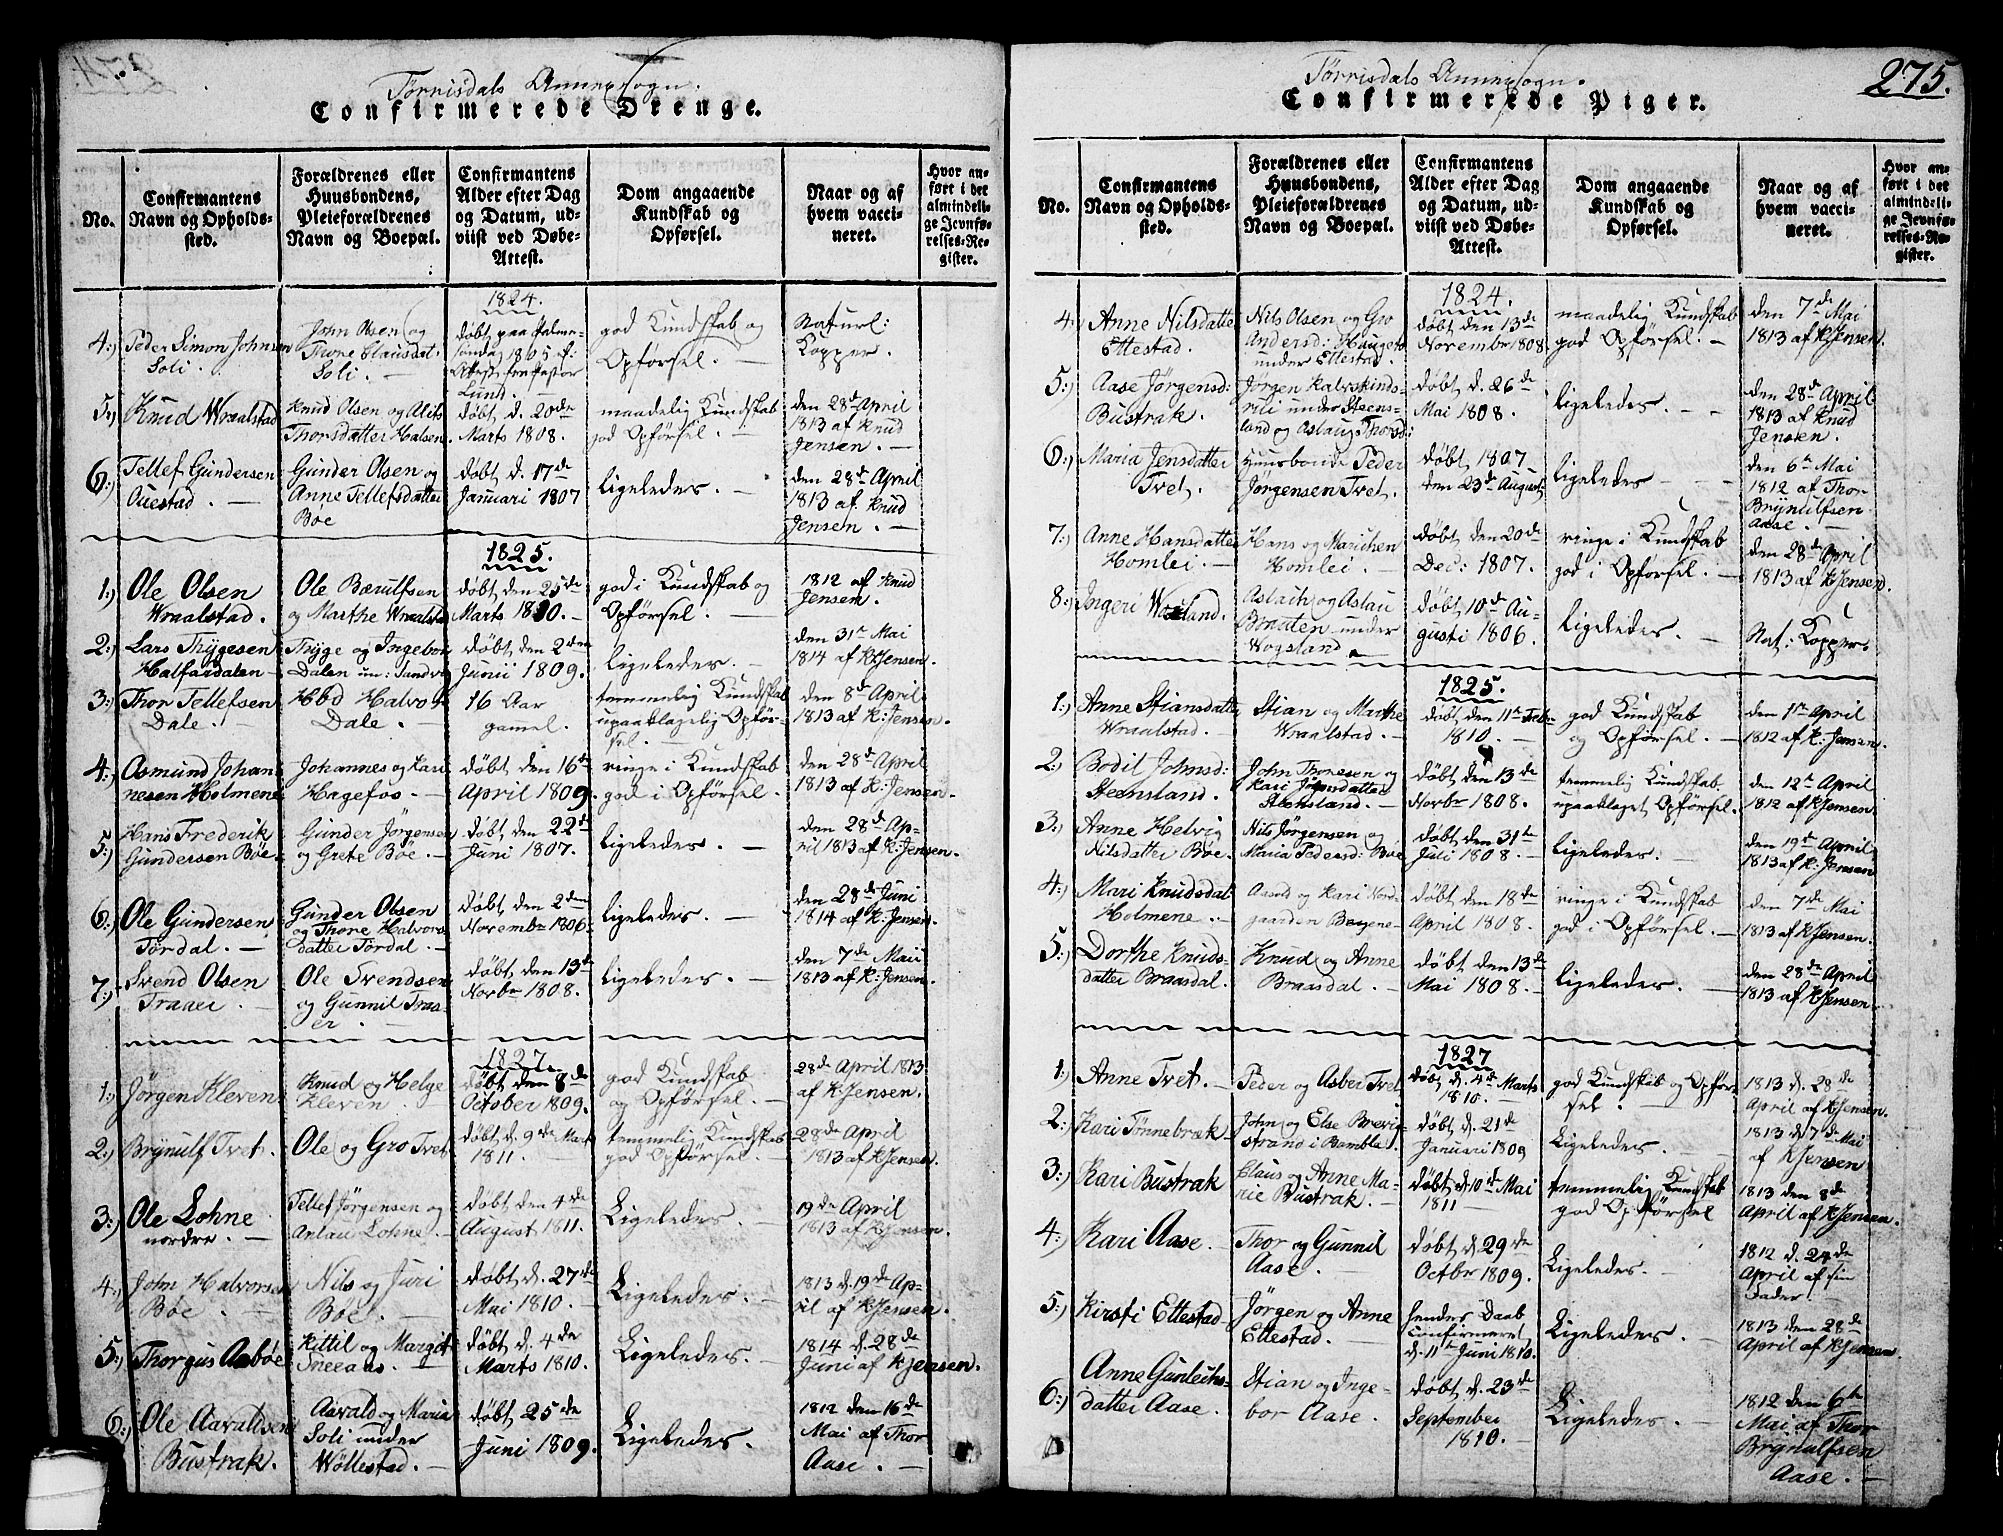 Tørrisdals Annexsogn.
Confirmerede Drenge.
No.
Confirmantens
Navn og Opholds-
sted.
Forældrenes eller
Huusbondens,
Pleieforældrenes
Navn og Boepæl.
Confirmantens
Alder efter Dag
og Datum, ud-
viist ved Døbe-
Attest.
Dom angaaende
Kundskab og
Opførsel.
Naar og af
hvem vacci-
neret.
Hvor an-
ført i det
almindeli-
ge Jevnfø-
relses-Re-
gister.
1824.
4.)
Peder Simon Johnsen
Soli.
John Olsen og
Thore Clausdat.
Soli. —
døbt paa Palme-
søndag 1805
Lund. —
god Kundskab og
Opførsel. —
Naturl:
Kopper. —
5.)
Knud Wraalstad
Knud Olsen og
Thorsdatter
døbt d. 20de
Marts 1808.
maadelig Kundskab
god Opførsel. —
den 28de April
1813 af Knud
Jensen. —
6.)
Tellef Gundersen
Ouestad. —
Gunder Olsen og
Anne Tellefsdatter
Bøe
døbt d. 17de
Januari 1807
ligeledes. —
den 28de April
1813 af Knud
Jensen. —
1825.
1.)
Ole Olsen
Wraalstad.
Ole Bærulfsen
og Marthe Wraalstad
døbt den 25de
Marts 1810. —
god i Kundskab og
Opførsel. —
1812 af Knud
Jensen.
2.)
Lars Thygesen
Halfardalen —
Thyge og Ingebor
Dalen un:
døbt den 2den
Junii 1809.
ligeledes. —
den 31te Mai
1814 af K:Jensen.
3.)
Thor Tellefsen
Dale. —
Hbd Halvor
Dale. —
16 Aar
gamel. —
temmelig Kundskab
upaaklagelig Opfør-
sel. —
den 8de April
1813 af K:Jensen.
4.)
Asmund Johan-
nesen Holmene
Johannes og Kari
Hagefos. —
døbt den 16de
April 1809.
ringe i Kundskab
god i Opførsel. —
den 28de April
1813 af K:Jensen.
5.)
Hans Frederik
Gundersen Bøe.
Gunder Jörgensen
og Grete Bøe. —
døbt den 22de
Juni 1807. —
ligeledes. —
den 28de Ap-
ril 1813 af K:Jensen.
6.)
Ole Gundersen
Tordal. —
Gunder Olsen
og Thore Halvors
datter Tordal. —
døbt den 2den
Novembr 1806.
ligeledes. —
den 28de Juni
1814 af K:Jensen.
7.)
Svend Olsen
Traaer —
Ole Svendsen
og Gunnil Traa-
er. —
døbt den 13de
Novbr 1808. —
ligeledes. —
den 7de Mai
1813 af K:Jensen.
1827.
1.)
Jørgen Kleven
Knud og Helge
Kleven.
døbt den 8de
October 1809.
god Kundskab
og Opførsel. —
28de April 1813
af K:Jensen.
2.)
Brynulf Tvet.
Ole og Gro Tvet.
døbt d. 9de Mart
1811. —
temmelig Kundskab
god Opførsel. —
28de April
1813 af K:Jensen.
3.)
Ole Lohne
nordre. —
Tellef Jørgensen og
Lohne.
døbt den 4de
August 1811.
Ligeledes. —
19de April
1813 af K:Jensen
4.)
John Halvorsen
Bøe. —
Nils og Juri
Bøe. —
døbt d. 27de
Mai 1810. —
Ligeledes. —
1813 d. 19de Ap-
ril af K:Jensen.
5.)
Thorgus Aabøe
Kittil og Margit
døbt d. 4de
Marts 1810.
Ligeledes. —
1814 d. 28de
Juni af K:Jensen.
6.)
Ole Aavaldsen
Bustrak.
Aavald og Maria
Soli under
Wöllestad. —
døbt 25de
Juni 1809.
Ligeledes. —
1812 den 16de
Mai af Thor
Aase. —
275.
Tørrisdals Annexsogn.
Confirmerede Piger.
No.
Confirmantens
Navn og Opholds-
sted.
Forældrenes eller
Huusbondens,
Pleieforældrenes
Navn og Boepæl.
Confirmantens
Alder efter Dag
og Datum, ud-
viist ved Døbe-
Attest.
Dom angaaende
Kundskab og
Opførsel.
Naar og af
hvem vacci-
neret.
Hvor an-
ført i det
almindeli-
ge Jevnfø-
relses-Re-
gister.
1824.
4.)
Anne Nilsdatter
Ettestad.
Nils Olsen og Gro
Andersd: Haugeto
under Ettestad.
døbt den 13de
Novembr 1808
maadelig Kundskab
god Opførsel. —
den 7de Mai
1813 af K:Jensen.
5.)
Aase Jørgensd:
Bustrak. —
Jørgen Kalvskinds-
under Steens-
land og Aslaug Thorsd:
døbt d. 26de
Mai 1808.
ligeledes. —
den 28de April
1813 af Knud
Jensen.
6.)
Maria Jensdatter
Tvet. —
Huusbonde Peder
Jørgensen Tvet.
døbt 1807
den 23de August
ligeledes —
den 6te Mai
1812 af Thor
Brynulfsen
Aase. —
7.)
Anne Hansdatter
Homlei. —
Hans og Marichen
Homlei. —
døbt den 20de
Dec: 1807.
ringe i Kundskab
god i Opførsel. —
den 28de April
1813 af K:Jensen.
8.)
Ingeri
Aslach og Aslau
Braaten under
Wogsland.
døbt 10de Au-
gusti 1806.
ligeledes. —
Nat: Kopper
1825.
1.)
Anne Stiansdatter
Wraalstad. —
Stian og Marthe
Wraalstad. —
døbt den 11te Febr
1810. —
god Kundskab
og Opførsel. —
den 1te April
1812 af K:Jensen.
2.)
Bodil Johnsd:
Steensland.
John Thoresen og
Kari
Steensland. —
døbt den 13de
Novbr 1808.
temmelig Kundskab
upaaklaget Opførsel.
den 12te April
1812 af K:Jensen.
3.)
Anne Helvig
Nilsdatter Bøe.
Nils Jørgensen og
Maria Pedersd: Bøe
døbt den 31te
Juli 1808. —
ligeledes. —
den 19de April
1813 af K:Jensen
4.)
Mari Knudsdat
Holmene. —
og Kari Nord-
gaarden
døbt den 18de
April 1808. —
ringe i Kundskab
god i Opførsel. —
den 7de Mai
1813 af K:Jensen.
5.)
Dorthe Knuds-
datter Braasdal.
Knud og Anne
Braasdal. —
døbt den 13de
Mai 1808. —
ligeledes. —
den 28de April
1813 af K:Jensen.
1827
1.)
Anne Tvet. —
Peder og Asber Tvet
døbt d. 4de Marts
1810. —
god Kundskab og Opfør-
sel. —
1813 d. 28de
April af K:Jensen.
2.)
Kari Tønnebræk
John og Else Brevi-
strand i Bamble.
døbt d. 21de
Januari 1809
Ligeledes. —
1813 d. 7de Mai
af K:Jensen
3.)
Kari Bustrak
Claus og Anne Ma-
rie Bustrak. —
døbt d. 10de Mai
1811 —
temmelig Kundskab
god Opførsel
1813 den 8de
April af K:Jensen.
4.)
Kari Aase. —
Thor og Gunnil
Aase. —
døbt d. 29de
Octbr 1809.
Ligeledes. —
1812 d. 24de
April af sin
Fader. —
5.)
Kirsti Ettestad
Jørgen og Anne
Ettestad. —
hendes Daab
confirmeret
d. 11te Juni 1810.
Ligeledes. —
1813 den 28de
April af K:Jensen
6.)
Anne Gunlechs-
datter Aase.
Stian og Inge-
bor Aase.
døbt d. 23de
September
1810. —
Ligeledes. —
1812 den 6te
Mai af Thor
Brynulfsen
Aase. —